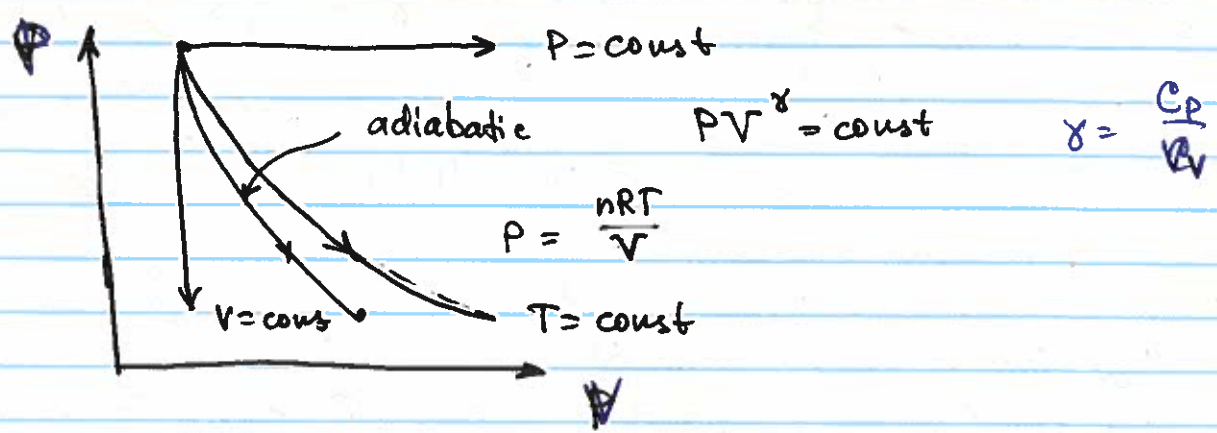 P
P = const
adiabatic
PV^γ = const
γ = C_P / C_V
P = nRT / V
V = cons
T = const
V